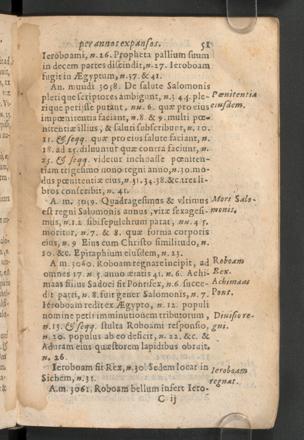 per annos expansos. 51
Ieroboami, n. 26. Propheta pallium suum
in decem partes discindit, n. 27. Ieroboam
fugit in Ægyptum, n. 37. & 41.
An. mundi 3038. De salute Salomonis
plerique scriptores ambigunt, n. 3. 4. 5. ple-
rique periisse putant, nu. 6. quæ pro eius
impœnitentia faciant, n. 8 & 9. multi pœ-
nitentiæ illius, & saluti subscribunt, n. 10.
21. & seqq. quæ pro eius salute faciant, n.
18. ad 25. diluuntur quæ contra faciunt, n.
25. & seqq. videtur inchoasse pœniten-
tiam trigesimo nono regni anno, n. 30. mo-
dus pœnitentiæ eius, n. 31. 34. 38. &c. tres li-
bros conscribit, n. 41.
Pœnitentia
eiusdem.
A. m. 3039. Quadragesimus & vltimus
est regni Salomonis annus, vitæ sexagesi-
mus, n. 1. 2. sibi sepulchrum parat, nu. 4. 5.
moritur, n. 7. & 8. quæ forma corporis
eius, n. 9 Eius cum Christo similitudo, n.
20. &c. Epitaphium eiusdem, n. 23.
Mors Salo-
monis.
A. m. 3060. Roboam regnare incipit, ad
omnes 17. n. 3. anno ætatis 41. n. 6. Achi-
maas filius Sadoci fit Pontifex, n. 6. succe-
dit patri, n. 8. fuit gener Salomonis, n. 7.
Ieroboam redit ex Ægypto, n. 12. populi
nomine petit imminutionem tributorum,
n. 13. & seqq. stulta Roboami responsio,
n. 20. populus ab eo deficit, n. 22. &c. &
Aduram eius quæstorem lapidibus obruit,
n. 26.
Roboam
Rex.
Achimaas
Pont.
Diuisio re-
gni.
Ieroboam fit Rex, n. 30. Sedem locat in
Sichem, n. 31.
Ieroboam
regnat.
A. m. 3061. Roboam bellum infert Iero-
C ij